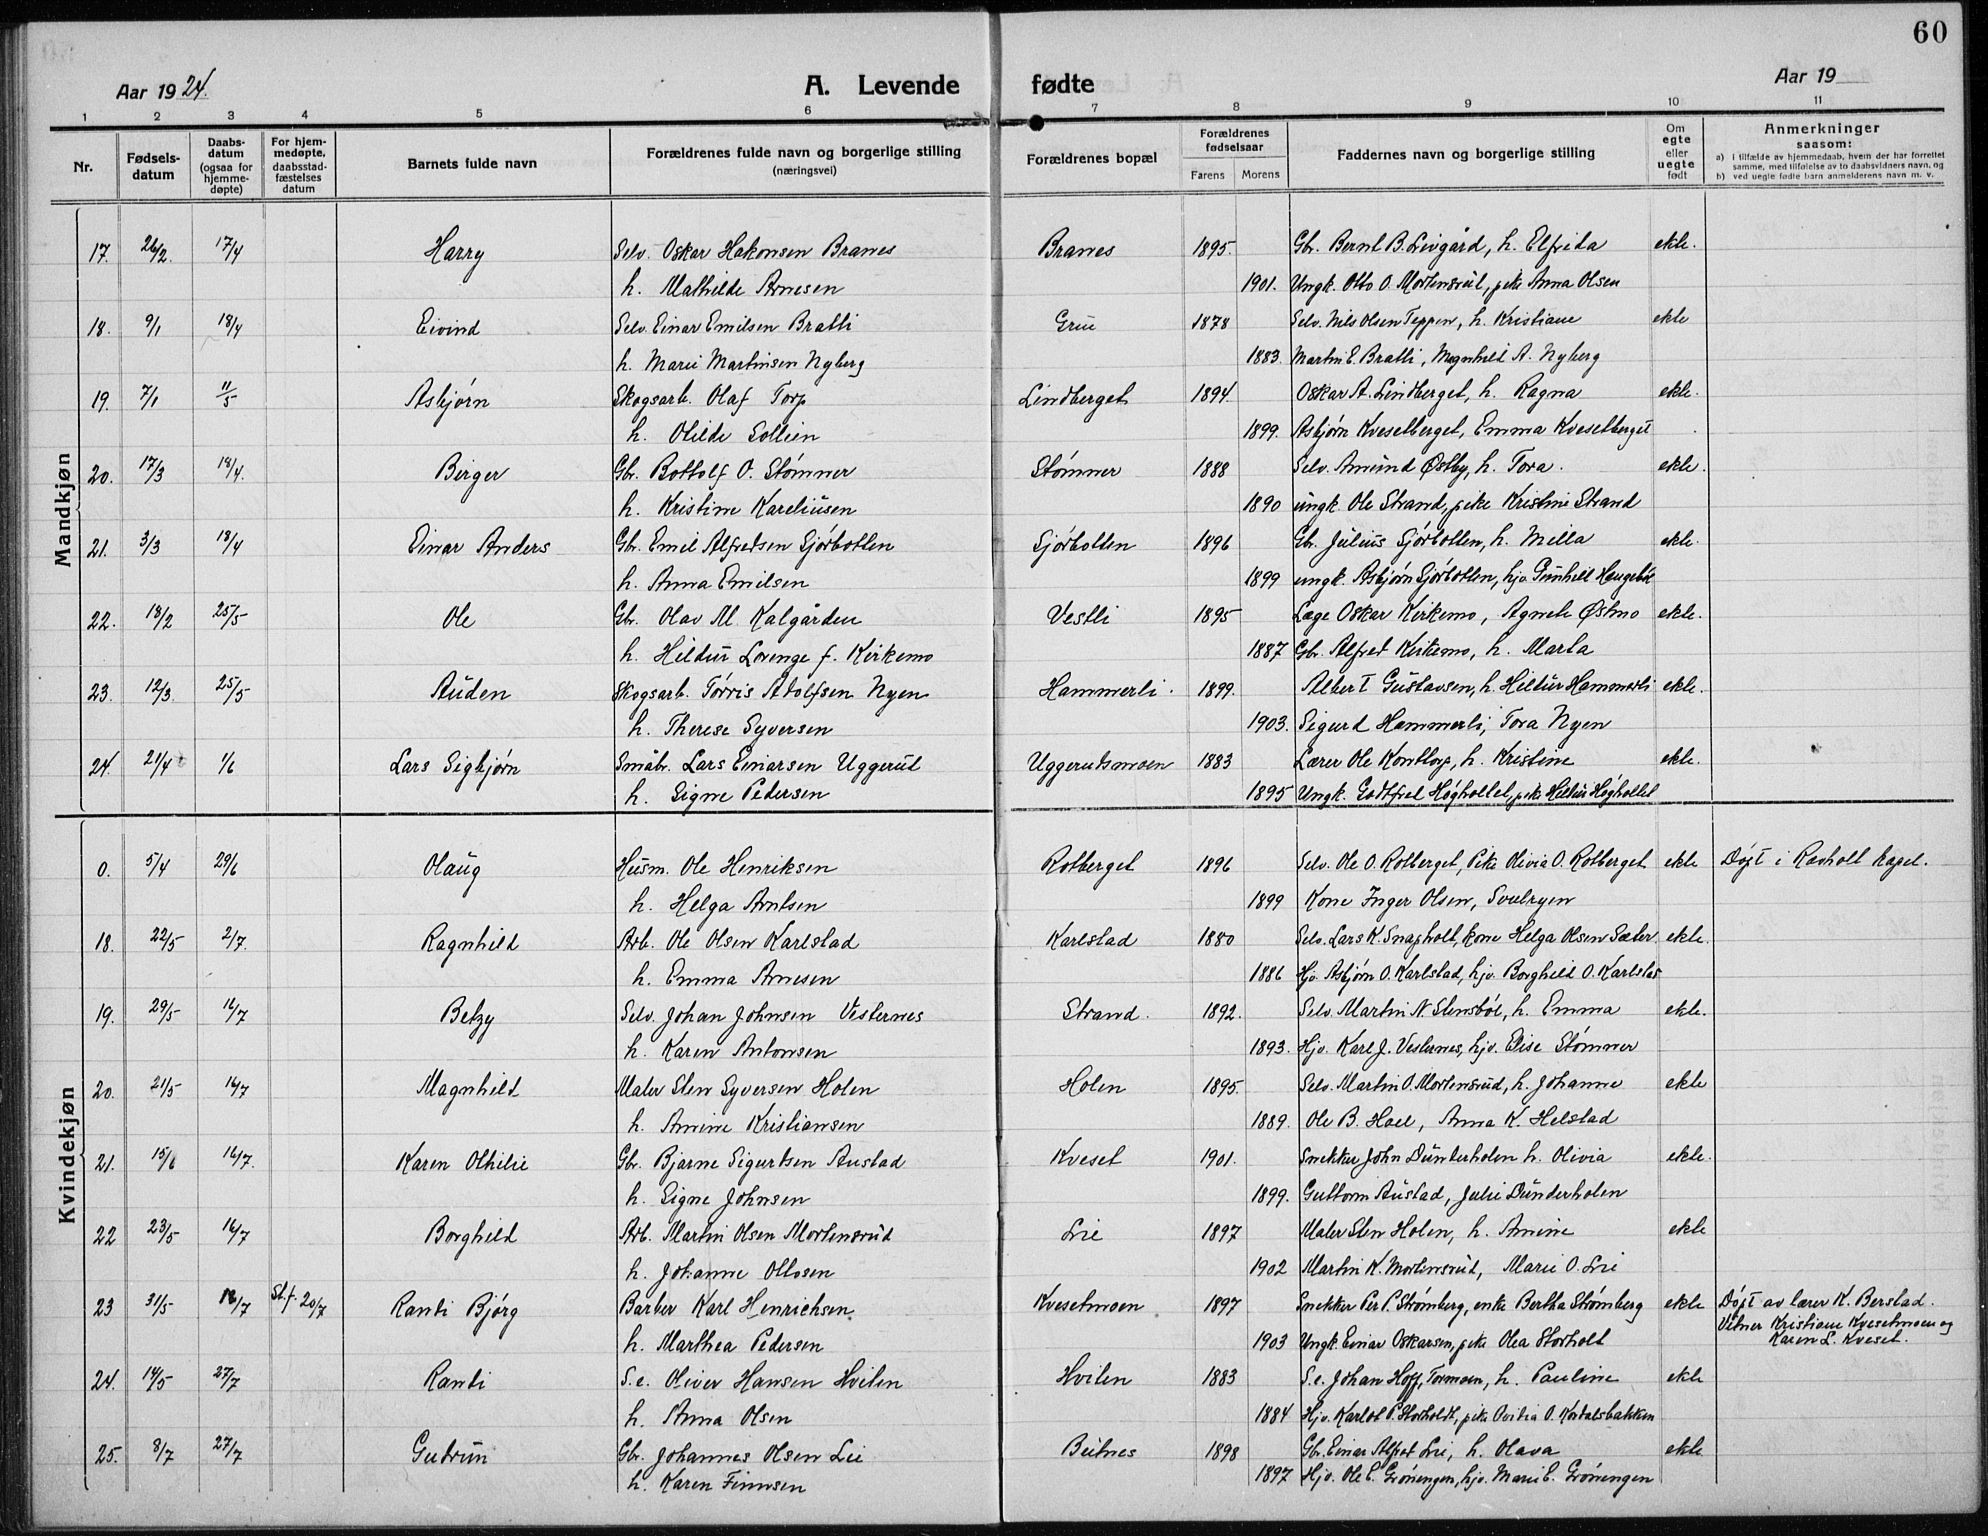 60
Aar 1924. A. Levende fødte Aar 19
1 2 3 4 5 6 7 8 9 10 11
Nr. Fødsels-datum Daabs-datum (ogsaa for hjemme-døpte) For hjem-medøpte, daabsstad-fæstelses datum Barnets fulde navn Forældrenes fulde navn og borgerlige stilling (næringsvei) Forældrenes bopæl Forældrenes fødselsaar Farens Morens Faddernes navn og borgerlige stilling Om egte eller uegte født Anmerkninger saasom:
a) i tilfælde av hjemmedaab, hvem der har forrettet samme, med tilføielse av to daabsvidners navn, og
b) ved uegte fødte barn anmelderens navn m. v.
Mandkjøn
17. 26/2. 17/4 Harry Selv. Oskar Hakonsen Branes Branes 1895. Gbr. Bernt B. Livgård, h. Elfrida ekte.
h. Mathilde Arnesen 1901. Ungk. Otto O. Mortensrud, pike Anna Olsen
18. 9/1 18/4 Eivind Selv. Einar Emilsen Bratli Grue 1878 Selv. Nils Olsen Teppen, h. Kristiane ekte
h. Marie Martinsen Nyberg 1883. Martin E. Bratli, Magnhild A. Nyberg
19. 7/1 11/5 Asbjørn Skogsarb. Olaf Torp Lindberget 1894. Oskar A. Lindberget, h. Ragna ekte.
h. Olilde Sollien 1899. Asbjørn Kvesetberget, Emma Kvesetberget
20. 17/3 18/4. Birger Gbr. Bottolf O. Stømner Stømner 1888 Selv. Amund Østby, h. Tora. ekte.
h. Kristine Kareliusen 1890 ungk. Ole Strand, pike Kristine Strand
21. 3/3 18/4 Einar Anders Gbr. Emil Alfredsen Sjørbotten Sjørbotten 1896 Gbr. Julius Sjørbotten, h. Milla ekte.
h. Anna Emilsen 1899 ungk. Asbjørn Sjørbotten, hjv. Gunhild Haugebøe
22. 18/2 25/5 Ole Gbr. Olav M Kalgården Vestli 1895 Læge Oskar Kirkemo, Agnete Østmo ekte.
h. Hildur Lovenge f. Kirkemo 1887 Gbr. Alfred Kirkemo, h. Marta
23. 12/3 25/5 Auden Skogsarb. Tørris Adolfsen Nyen Hammerli. 1899. Albert Gustavsen, h. Hildur Hammerli ekte.
h. Therese Syversen 1903. Sigurd Hammerli, Tora Nyen
24. 21/4 1/6 Lars Sigbjørn Småbr. Lars Einarsen Uggerud Uggerudsmoen 1883 Lærer Ole Kontorp, h. Kristine ekte.
h. Signe Pedersen 1895 Ungk. Godtfred Høgholtet, pike Hildur Høgholtet
Kvindekjøn
0. 5/4 29/6 Olaug Husm. Ole Henriksen Rotberget 1896 Selv. Ole O. Rotberget, Pike Olivia O. Rotberget ekte Døpt i Ravholt kapel.
h. Helga Arntsen 1899 Kone Inger Olsen, Svulryen
18. 22/5 2/7. Ragnhild Arb. Ole Olsen Karlstad Karlstad 1880 Selv. Lars K. Snapholt, kone Helga Olsen Sæter. ekte.
h. Emma Arnesen 1886 Hjv. Asbjørn O. Karlstad, hjv. Borghild O. Karlstad
19. 29/5 16/7 Betzy Selv. Johan Johnsen Vesternes Strand. 1892. Selv. Martin N. Stensbøl, h. Emma ekte.
h. Karen Antonsen 1893. Hjv. Karl J. Vesternes, hjv. Elise Stømner
20. 21/5 16/7 Magnhild Maler Sten Syversen Holen Holen 1895. Selv. Martin O. Mortensrud, h. Johanne ekte
h. Amine Kristiansen 1889. Ole B. Hoel, Anna K. Helstad
21. 15/6 16/7. Karen Othilie Gbr. Bjarne Sigurtsen Austad Kveset 1901. Snekker John Dunderholen h. Olivia ekte.
h. Signe Johnsen 1899. Guttorm Austad, Julie Dunderholen
22 23/5 16/7 Borghild Arb. Martin Olsen Mortensrud Lie 1897 Maler Sten Holen, h. Amine ekte
h. Johanne Ottosen 1902 Martin K. Mortensrud, Marie O. Lie
23 31/5 18/7 St.f. 20/7 Randi Bjørg Barber Karl Henrichsen Kvesetmoen 1897 Snekker Per P. Strømberg, enke Bertha Strømberg ekte Døpt av lærer K. Berstad.
Vitner Kristiane Kvesetmoen og
h. Marthea Pedersen 1903 Ungk. Einar Oskarsen, pike Olea Storholt Karen L. Kveset.
24. 14/5 27/7 Randi S.e. Oliver Hansen Hvilen Hvilen 1883 S.e. Johan Hoff, Tormoen, h. Pauline ekte
h. Anna Olsen 1884 Hjv. Karlot P. Storholdt, pike Ovidia O. Kordalsbakken
25. 8/7 27/7 Gudrun Gbr. Johannes Olsen Lie Butnes 1898 Gbr. Einar Alfred Lie, h. Olava ekte
h. Karen Finnsen 1897 Hjv. Ole E. Grøningen, hjv. Marie E. Grøningen